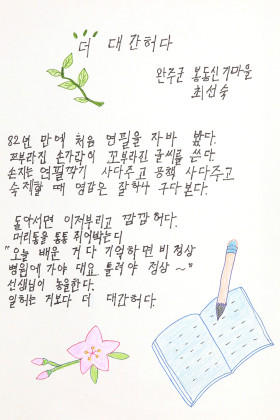 더 대간허다
완주군 봉동신기마을
최선숙
82년 만에 처음 연필을 자바 봤다.
꼬부라진 손가락이 꼬부라진 글씨를 쓴다.
손자는 연필깎기 사다주고 공책 사다주고
숙제할 때 영감은 잘하나 구다본다.
돌아서면 이저부리고 깜깜허다.
머리통을 통통 쥐어박는디
"오늘 배운 거 다 기억하면 비정상
병원에 가야 대요 틀려야 정상~"
선생님이 농을한다.
일허는 거보다 더 대간허다.